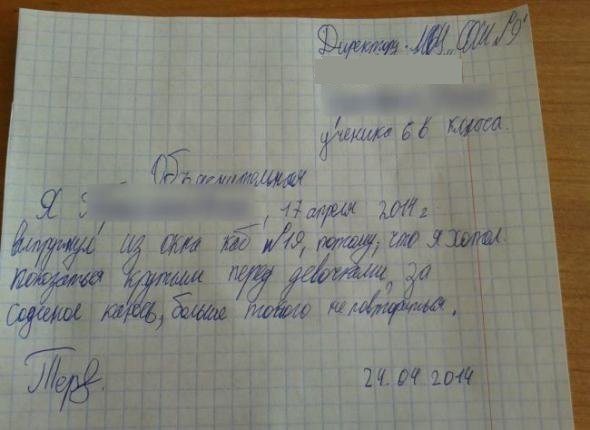 Директору МОУ „СОШ №9"
ученика 6 В класса.
Объяснительная
Я , 17 апреля 2014 г
выпрыгнул из окна каб №19, потому, что я хотел
показаться крутым перед девочками, за
соденое каюсь, больше токого не повториться.
24.04 2014